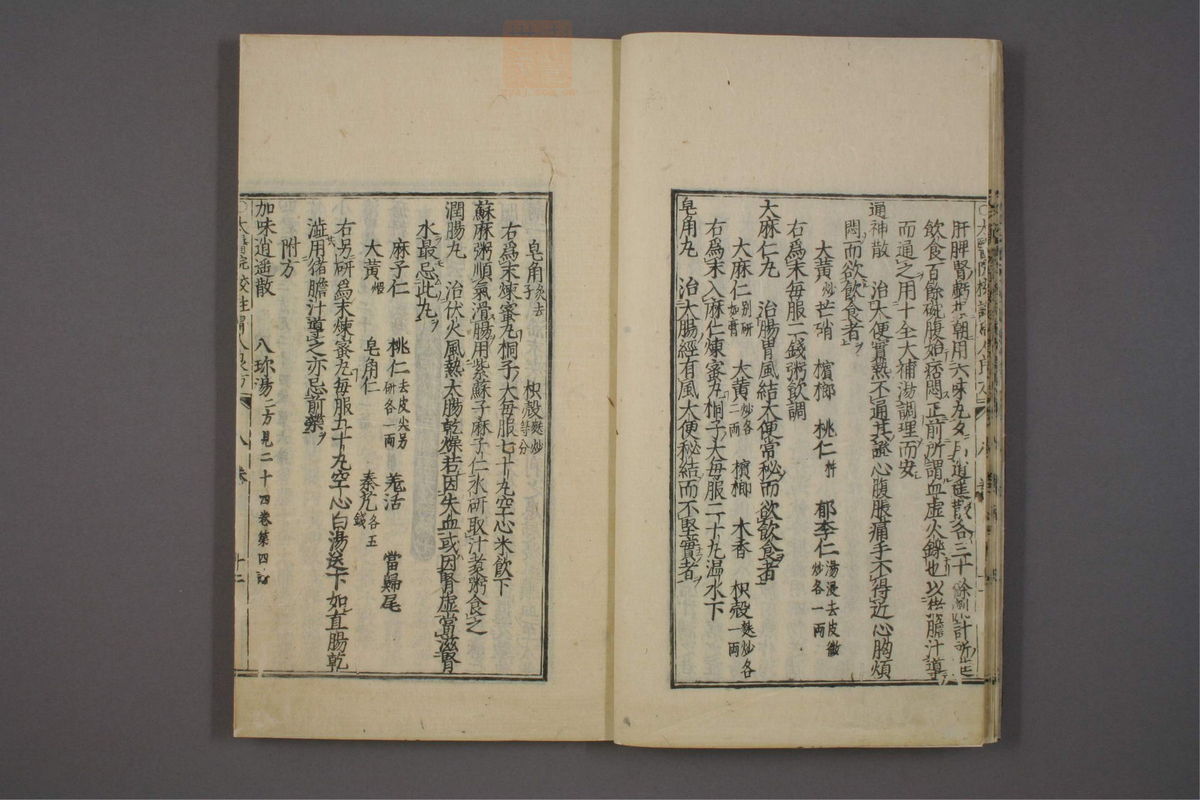 肝脾腎虧損朝用六味丸夕用逍遙散各三十餘劑計所進
飲食百餘碗腹始痞悶正前所謂血虛火鑠也以猪膽汁導
而通之用十全大補湯調理而安
通神散　治大便實熱不通其證心腹脹痛手不得近心胸煩
悶而欲飲食者
大黃炒　芒硝　檳榔　桃仁　郁李仁湯浸去皮微炒各一兩
右為末每服二錢粥飲調
大麻仁丸　治腸胃風結大便常秘而欲飲食者
大麻仁別研如膏　大黃炒各二兩　檳榔　木香　枳殼麩炒各一兩
右為末入麻仁煉蜜丸桐子大每服二十丸温水下
皂角丸　治大腸經有風大便秘結而不堅實者
皂角炙去子　枳殼麩炒等分
右為末煉蜜丸桐子大每服七十丸空心米飲下
蘇麻粥順氣滑腸用紫蘇子麻子仁水研取汁煮粥食之
潤腸丸　治伏火風熱大腸乾燥若因失血或因腎虛當滋腎
水最忌此丸
麻子仁　桃仁去皮尖另研各一兩　羌活　當歸尾
大黃煨　皂角仁　秦艽各五錢
右另研為末煉蜜丸每服五十丸空心白湯送下如直腸乾
澁用猪膽汁導之亦忌前藥
附方
加味逍遥散　八珍湯二方見二十四卷第四
八卷　十二